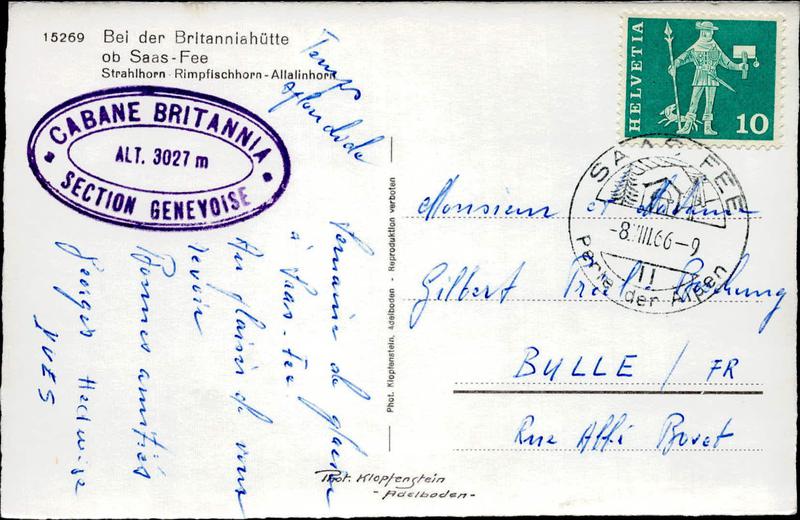 15269 Bei der Britanniahütte
ob Saas-Fee
Strahlhorn - Rimpfischhorn - Allalinhorn
CABANE BRITANNIA
ALT. 3027 m
SECTION GENEVOISE
Temps
splendide
Semaine de glace
à Saas-Fee
Au plaisir de vous
revoir
Bonnes amitiés
Georges Hedwige
YVES
Phot. Klopfenstein, Adelboden - Reproduktion verboten
Phot. Klopfenstein
- Adelboden -
HELVETIA
10
SAAS-FEE
-8.VIII.66-9
11
Perle der Alpen
Monsieur et Madame
Gilbert
BULLE / FR
Rue Abbé Bovet